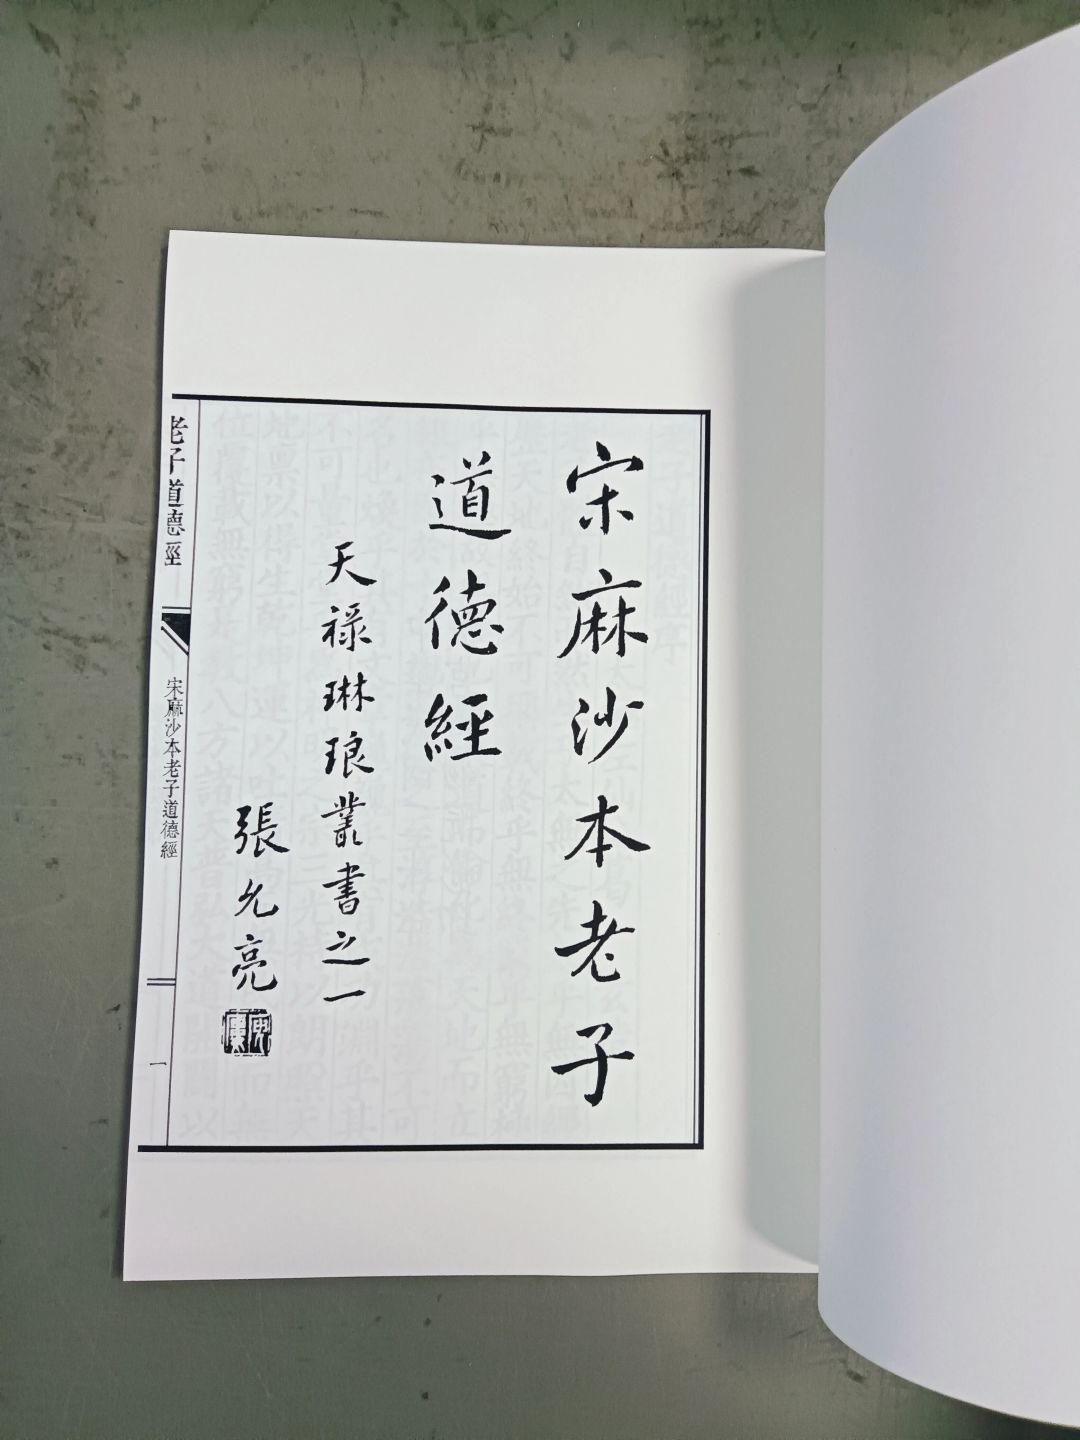 宋麻沙本老子
道德經
天祿琳琅叢書之一
張允亮
老子道德經
宋麻沙本老子道德經
一